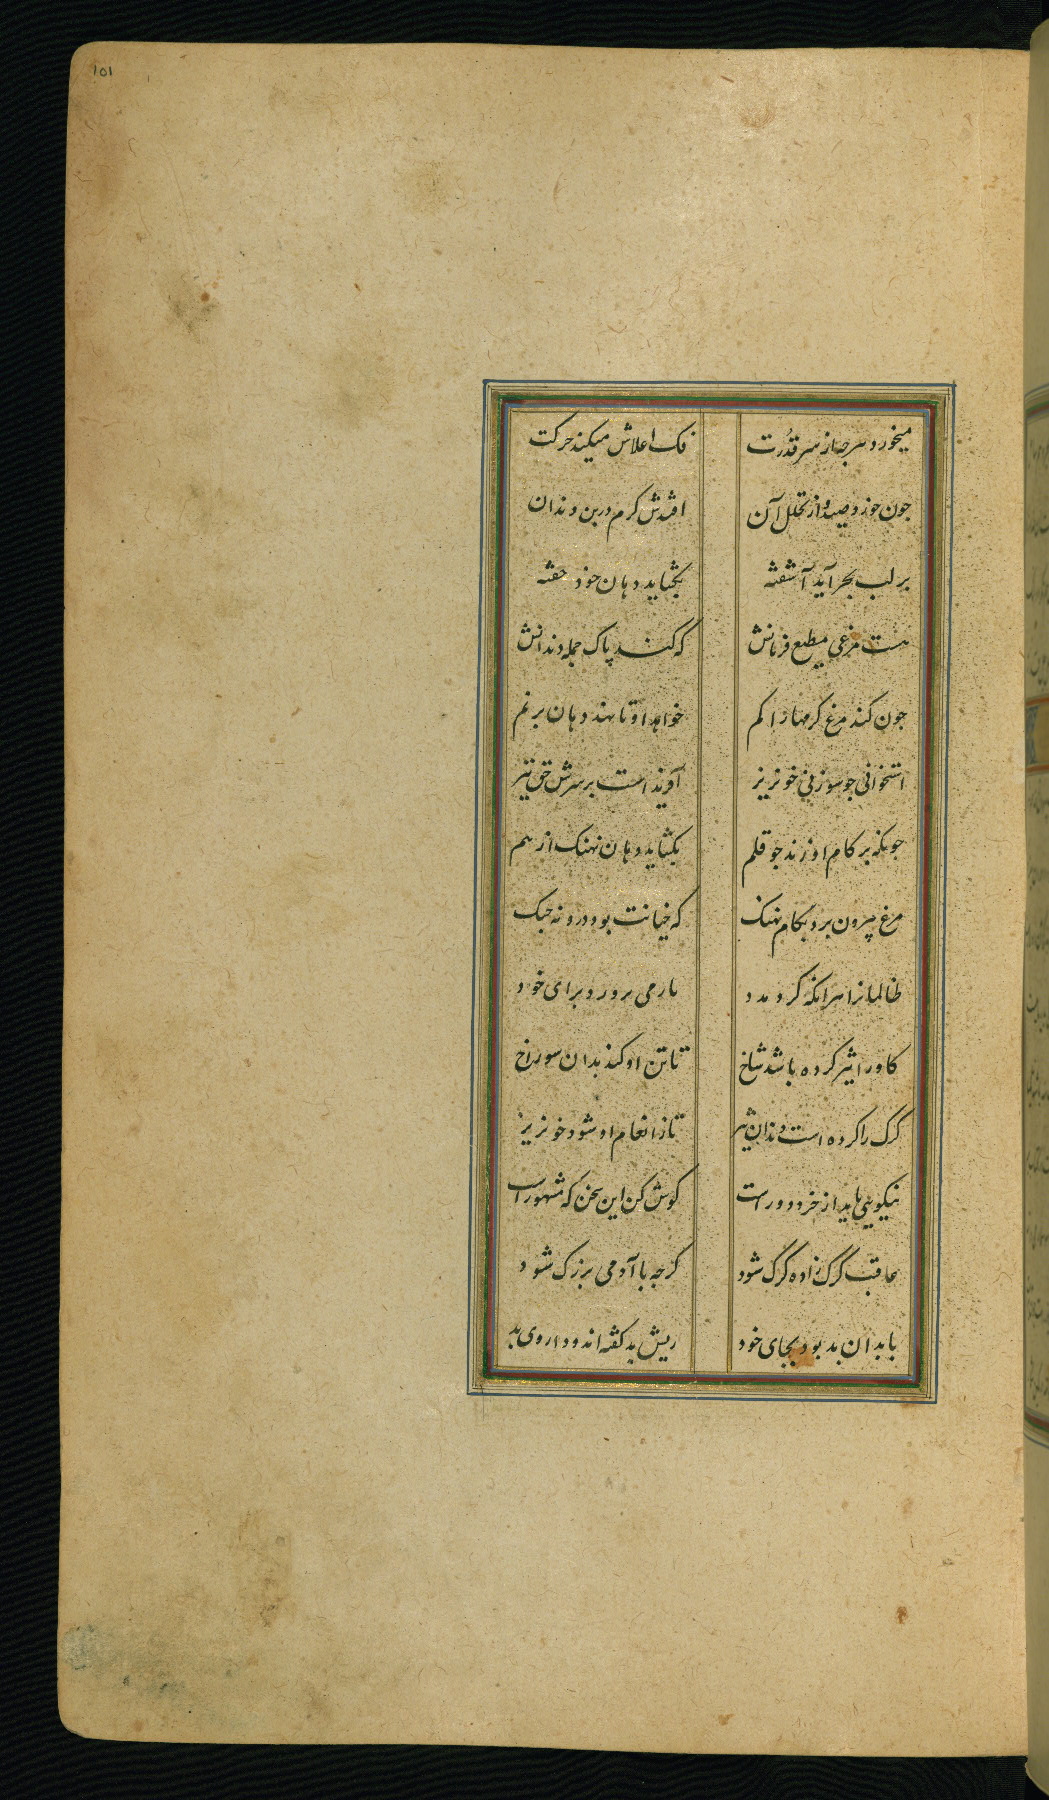 101
میخورد هرجه از سر قدرت فک اعلاش میکند حرکت
جون خورد صید و از تخلل آن افتدش کرم در بن دندان
بر لب بحر آید آشفته بکشاید دهان خود خفته
هست مرغی مطیع فرمانش که کند پاک جمله دندانش
جون کند مرغ کرمهارا کم خواهد او تا نهد دهان بر هم
استخوانی جو سوزنی خونریز آفریدست بر سرش حق تیز
جونکه بر کام او زند جو قلم بکشاید دهان نهنک از هم
مرغ بیرون برد بکام نهنک که خیانت بود درونه جنک
ظالمانرا هرانکه کرد مدد مار می برورد برای خود
کاو را تیز کرده باشد شاخ تا تن او کند بدان سوراخ
کرک را کرده است دندان تیز تا ز انعام او شود خونریز
نیکویی با بد از خرد دورست کوش کن این سخن که مشهورست
عاقبت گرگ زاده گرگ شود کرجه با آدمی بزرک شود
با بدان بد بود بجای خود ریش بد کفته اند و داروی بد